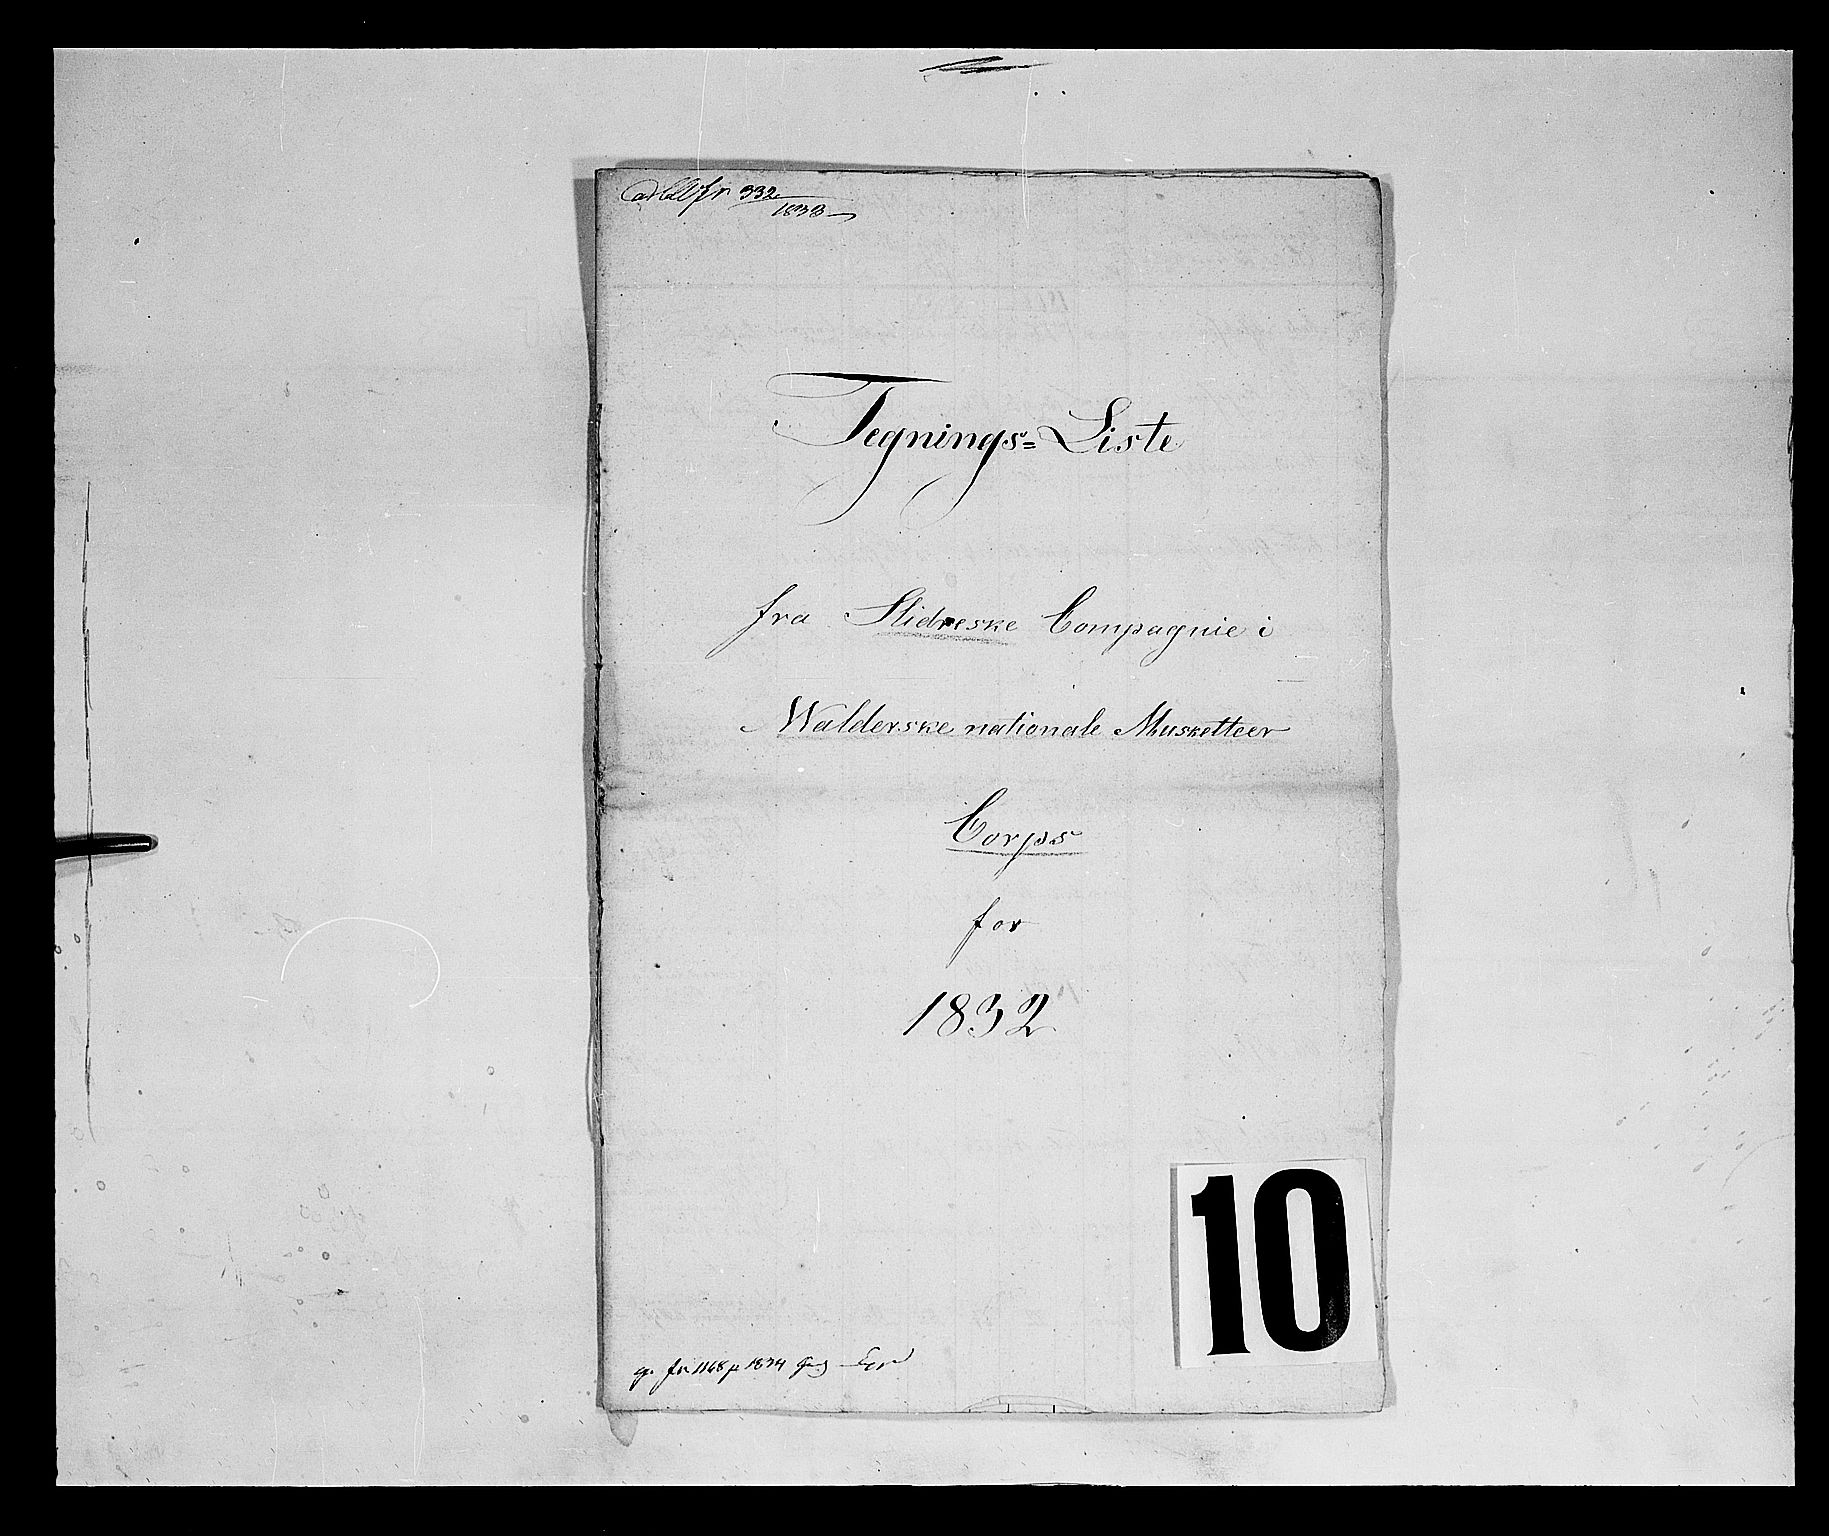 332
1833
Tegnings=Liste
fra Slidreske Compagnie i
Walderske nationale Musketteer
Corps
for
1832
10
1168 1834